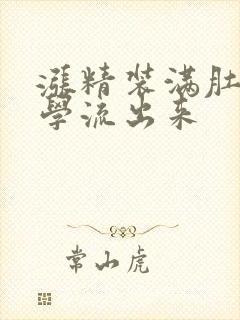 漲精装满肚
學流出来
常山虎